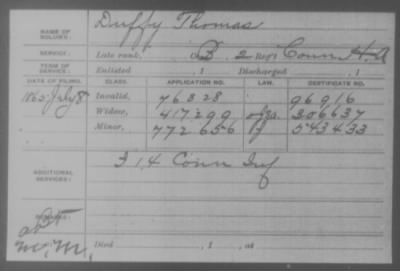 NAME OF SOLDIER: Duffy Thomas
SERVICE: Late rank, Co. B, 2 Reg't Conn H.A
TERM OF SERVICE: Enlisted , 1 Discharged , 1
DATE OF FILING. CLASS. APPLICATION NO. LAW. CERTIFICATE NO.
1865 July 8 Invalid, 76328 96916
Widow, 417299 306637
Minor, 772656 543433
ADDITIONAL SERVICES: F 14 Conn Inf
REMARKS:
Died , 1 , at